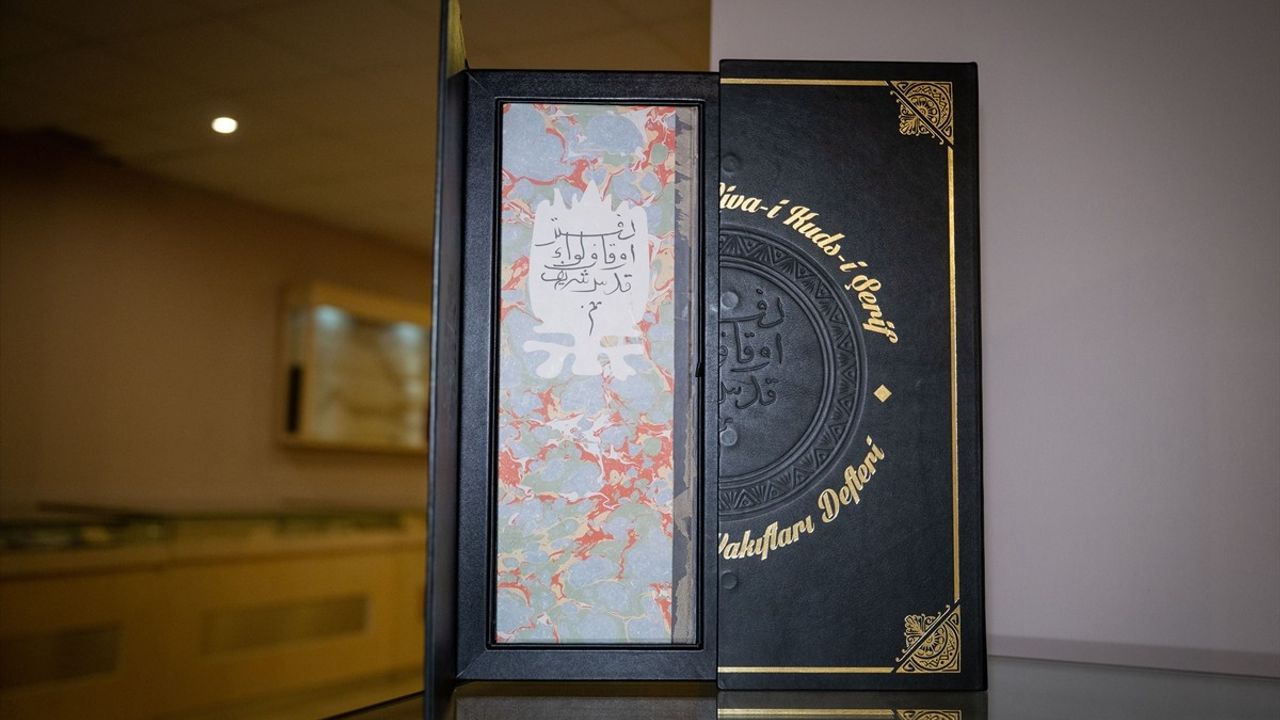 دفتر
اوقاف لواء
قدس شريف
Liva-i Kuds-i Şerif
دفتر
اوقاف
قدس
Vakıfları Defteri